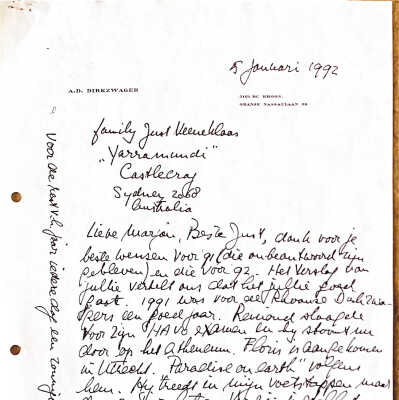 5 Januari 1992
A.D. DIRKZWAGER
ORANJE NASSAULAAN
family Just Veeneklaas
"Yarramundi"
Castlecrag
Sydney 2068
Australia
Lieve Marian, Beste Just, dank voor je
beste wensen voor 91 (die onbeantwoord zijn
gebleven) en die voor 92. Het verslag van
jullie vertelt ons dat het jullie goed
gaat. 1991 was voor de Rhoonse Dirkzwa-
gers een goed jaar. Reimond slaagde
voor zijn HAVO examen en hij stoomt nu
door op het Atheneum. Floris is aangekomen
in Utrecht. "Paradise on earth" volgens
hem. Hij treedt in mijn voetstappen maar
Voor de rest v.h. jaar iedere dag een zonnige